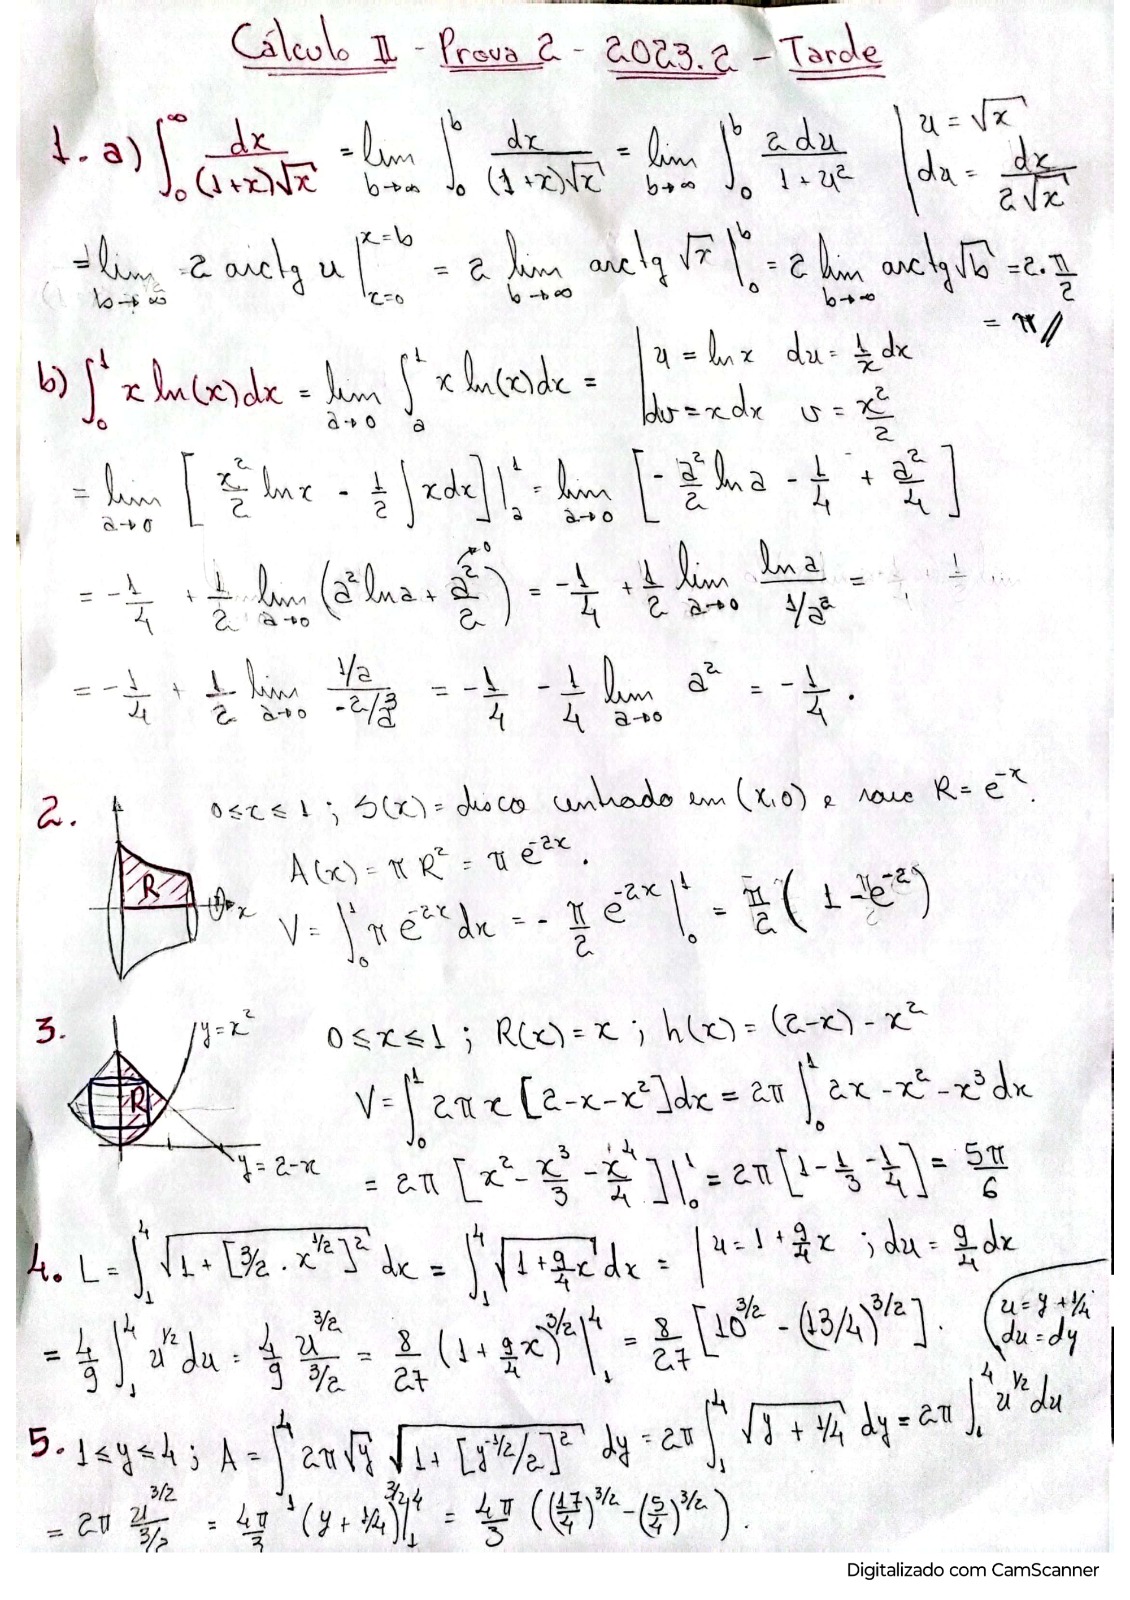 Cálculo II - Prova 2 - 2023.2 - Tarde
1. a) ∫_0^∞ dx/((1+x)√x) = lim_{b→∞} ∫_0^b dx/((1+x)√x) = lim_{b→∞} ∫_0^b 2du/(1+u²) | u = √x
du = dx/(2√x)
= lim_{b→∞} 2 arctg u |_{x=0}^{x=b} = 2 lim_{b→∞} arctg √x |_0^b = 2 lim_{b→∞} arctg √b = 2·π/2
= π //
b) ∫_0^1 x ln(x)dx = lim_{a→0} ∫_a^1 x ln(x)dx = | u = ln x du = 1/x dx
dv = x dx v = x²/2
= lim_{a→0} [x²/2 ln x - 1/2 ∫x dx]|_a^1 = lim_{a→0} [-a²/2 ln a - 1/4 + a²/4]
= -1/4 + 1/2 lim_{a→0} (a² ln a + a²/2 →0) = -1/4 + 1/2 lim_{a→0} ln a/(1/a²) =
= -1/4 + 1/2 lim_{a→0} (1/a)/(-2/a³) = -1/4 - 1/4 lim_{a→0} a² = -1/4.
2. 0≤x≤1 ; S(x) = disco centrado em (x,0) e raio R = e^{-x}.
A(x) = πR² = π e^{-2x}.
R x
V = ∫_0^1 π e^{-2x} dx = -π/2 e^{-2x} |_0^1 = π/2 (1 - e^{-2})
3. y=x² 0≤x≤1 ; R(x) = x ; h(x) = (2-x) - x²
R V = ∫_0^1 2πx [2-x-x²]dx = 2π ∫_0^1 2x - x² - x³ dx
y = 2-x = 2π [x² - x³/3 - x⁴/4]|_0^1 = 2π [1 - 1/3 - 1/4] = 5π/6
4. L = ∫_1^4 √(1 + [3/2 · x^{1/2}]²) dx = ∫_1^4 √(1 + 9/4 x) dx = | u = 1 + 9/4 x ; du = 9/4 dx
= 4/9 ∫_1^4 u^{1/2} du = 4/9 u^{3/2}/(3/2) = 8/27 (1 + 9/4 x)^{3/2} |_1^4 = 8/27 [10^{3/2} - (13/4)^{3/2}].
u = y + 1/4
du = dy
5. 1≤y≤4 ; A = ∫_1^4 2π√y √(1 + [y^{-1/2}/2]²) dy = 2π ∫_1^4 √(y + 1/4) dy = 2π ∫_1^4 u^{1/2} du
= 2π u^{3/2}/(3/2) = 4π/3 (y + 1/4)^{3/2} |_1^4 = 4π/3 ((17/4)^{3/2} - (5/4)^{3/2}).
Digitalizado com CamScanner